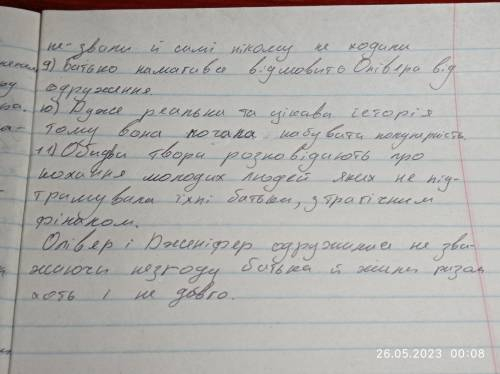 не звали й самі нікому не ходили
9) батько намагався відмовить Олівера від
одруження
10) Дуже реальна та цікава історія
тому вона почала набувати популярність.
11) Обидва твори розповідають про
кохання молодих людей яких не під-
тримувала їхні батьки, з трагічним
фіналом.
Олівер і Дженіфер одружилися не зва-
жаючи незгоду батька й жили разом
хоть і не довго.
26.05.2023 00:08